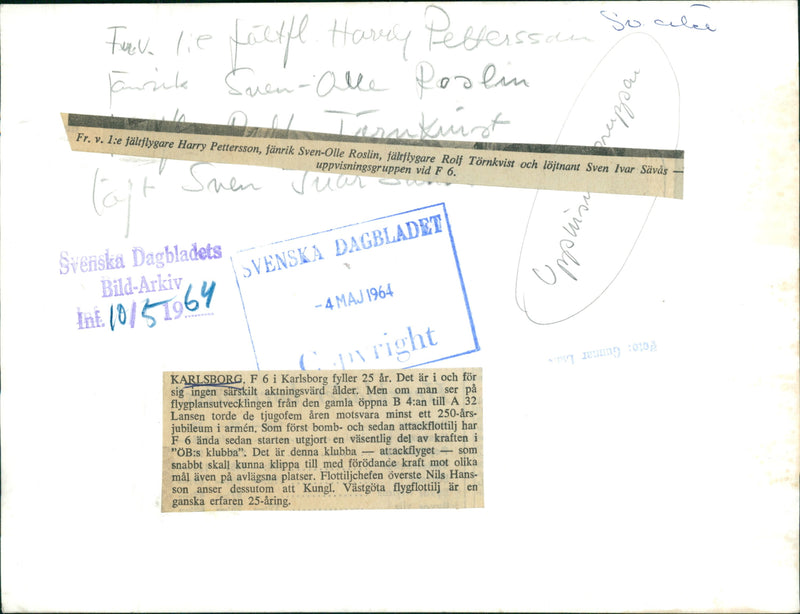 Fr.v. 1:e fältfl. Harry Pettersson
fänrik Sven-Olle Roslin
Törnkvist
Fr. v. 1:e fältflygare Harry Pettersson, fänrik Sven-Olle Roslin, fältflygare Rolf Törnkvist och löjtnant Sven Ivar Sävås —
uppvisningsgruppen vid F 6.
löjt Sven Ivar
Svenska Dagbladets
Bild-Arkiv
Inf. 10/5 1964
SVENSKA DAGBLADET
- 4 MAJ 1964
Copyright
Foto: Gunnar
KARLSBORG. F 6 i Karlsborg fyller 25 år. Det är i och för
sig ingen särskilt aktningsvärd ålder. Men om man ser på
flygplansutvecklingen från den gamla öppna B 4:an till A 32
Lansen torde de tjugofem åren motsvara minst ett 250-års-
jubileum i armén. Som först bomb- och sedan attackflottilj har
F 6 ända sedan starten utgjort en väsentlig del av kraften i
"ÖB:s klubba". Det är denna klubba — attackflyget — som
snabbt skall kunna klippa till med förödande kraft mot olika
mål även på avlägsna platser. Flottiljchefen överste Nils Hans-
son anser dessutom att Kungl. Västgöta flygflottilj är en
ganska erfaren 25-åring.